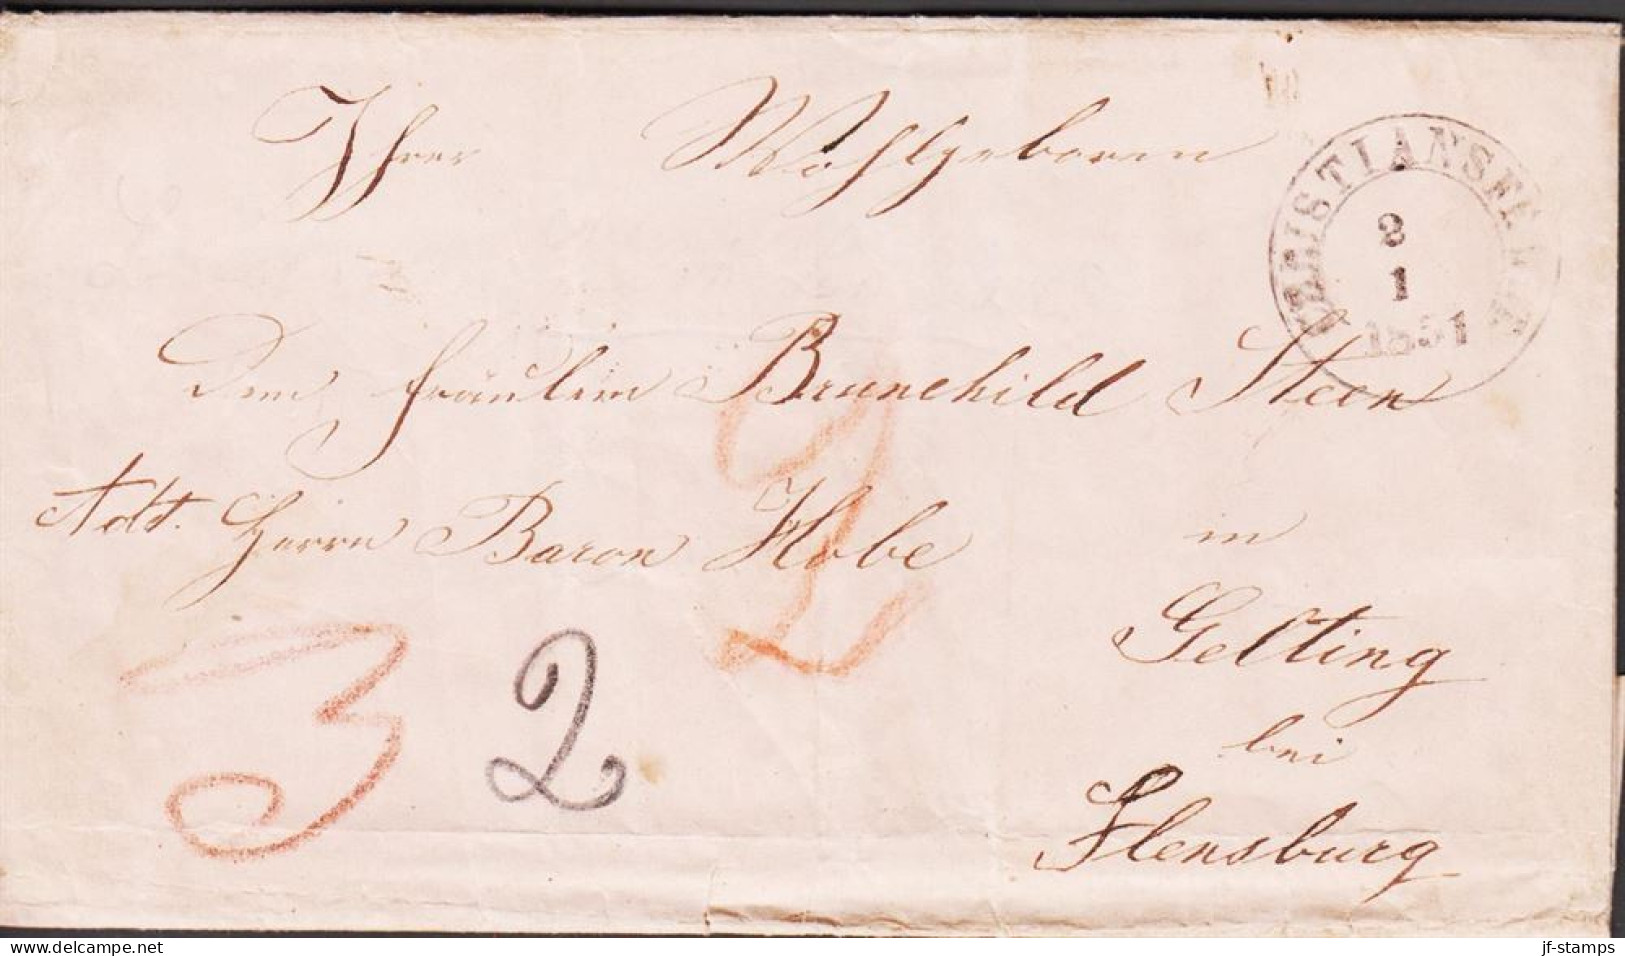 Ihrer Wohlgeboren
CHRISTIANSFELDT
3
1
1851
Dem Fräulein Brunchild Steen
Adr. Herrn Baron Hobe
in
Gelting
bei
Flensburg
3 2 2
www.delcampe.net
jf-stamps